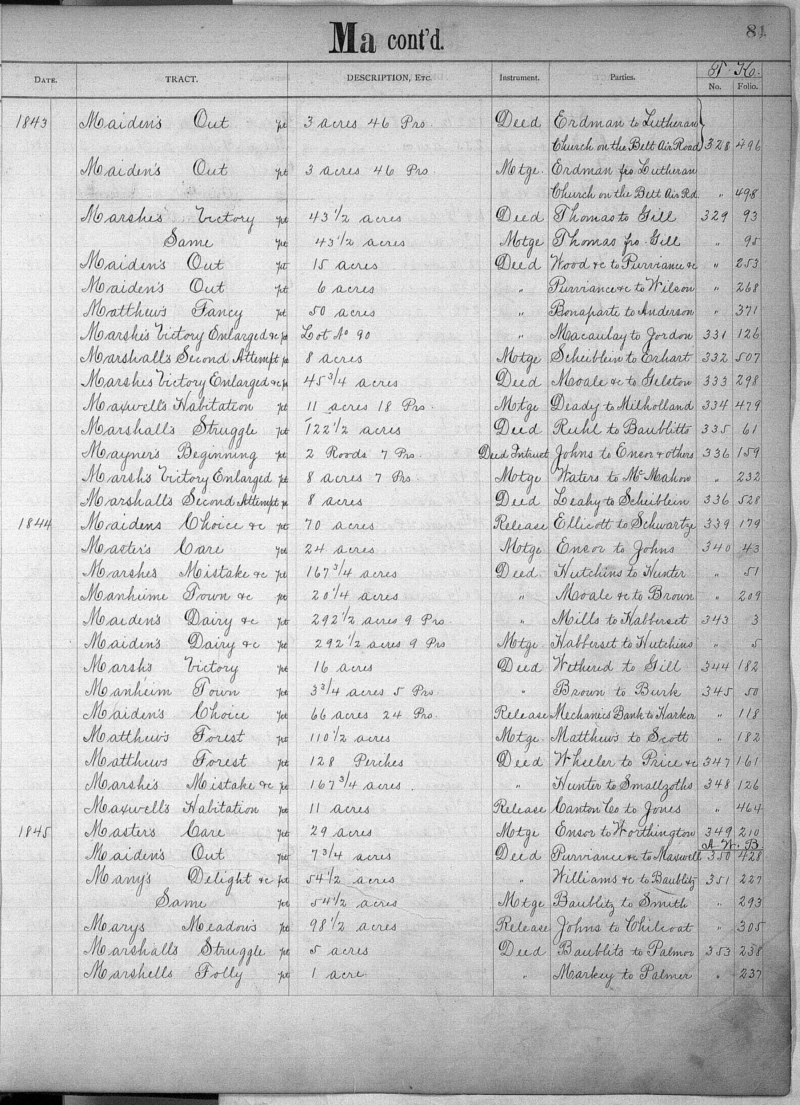 81
Ma cont'd.
T. K.
DATE. TRACT. DESCRIPTION, ETC. Instrument. Parties. No. Folio.
1843 Maiden's Out pt 3 acres 46 Pro. Deed Erdman to Lutheran
Church on the Belt Air Road 328 496
Maiden's Out pt 3 acres 46 Pro. Motge. Erdman fro Lutheran
Church on the Belt Air Rd. " 498
Marshe's Victory pt 43 1/2 acres Deed Thomas to Gill 329 93
Same pt 43 1/2 acres Motge Thomas fro. Gill " 95
Maiden's Out pt 15 acres Deed Wood &c to Purviance &c " 253
Maiden's Out pt 6 acres " Purviance &c to Wilson " 268
Matthews Fancy pt 50 acres " Bonaparte to Anderson " 371
Marshe's Victory Enlarged &c pt Lot No 90 " Macaulay to Jordon 331 126
Marshall's Second Attempt pt 8 acres Motge Scheiblein to Erhart 332 507
Marshes Victory Enlarged &c pt 45 3/4 acres Deed Moale &c to Gelston 333 298
Maxwell's Habitation pt 11 acres 18 Pro. Motge Deady to Milholland 334 479
Marshall's Struggle pt 122 1/2 acres Deed Ruhl to Baublitts 335 61
Mayner's Beginning pt 2 Roods 7 Pro. Deed Intrust Johns to Ensor & others 336 159
Marsh's Victory Enlarged pt 8 acres 7 Pro. Motge Waters to McMahon " 232
Marshalls Second Attempt pt 8 acres Deed Leahy to Scheiblein 336 528
1844 Maidens Choice &c pt 70 acres Release Ellicott to Schwartze 339 179
Master's Care pt 24 acres Motge Ensor to Johns 340 43
Marshes Mistake &c pt 167 3/4 acres Deed Hutchins to Hunter " 51
Manhime Town &c pt 20 1/4 acres " Moale &c to Brown " 209
Maiden's Dairy &c pt 292 1/2 acres 9 Pro. " Mills to Habberset 343 3
Maiden's Dairy &c pt 292 1/2 acres 9 Pro Motge Habberset to Hutchins " 5
Marsh's Victory pt 16 acres Deed Wethered to Gill 344 182
Manheim Town pt 3 3/4 acres 5 Pro " Brown to Burk 345 50
Maiden's Choice pt 66 acres 24 Pro. Release Mechanics Bank to Harker " 118
Matthew's Forest pt 110 1/2 acres Motge. Matthews to Scott " 182
Matthews Forest pt 128 Perches Deed Wheeler to Price &c 347 161
Marshe's Mistake &c pt 167 3/4 acres. " Hunter to Smallzoths 348 126
Maxwells Habitation pt 11 acres Release Canton Co to Jones " 464
1845 Master's Care pt 29 acres Motge Ensor to Worthington 349 210
A. W. B
Maiden's Out pt 7 3/4 acres Deed Purviance &c to Maxwell 350 428
Many's Delight &c pt 54 1/2 acres " Williams &c to Baublitz 351 227
Same pt 54 1/2 acres Motge Baublitz to Smith " 293
Marys Meadows pt 98 1/2 acres Release Johns to Chilcoat " 305
Marshalls Struggle pt 5 acres Deed Baublits to Palmor 353 238
Marshells Folly pt 1 acre " Markey to Palmer " 237